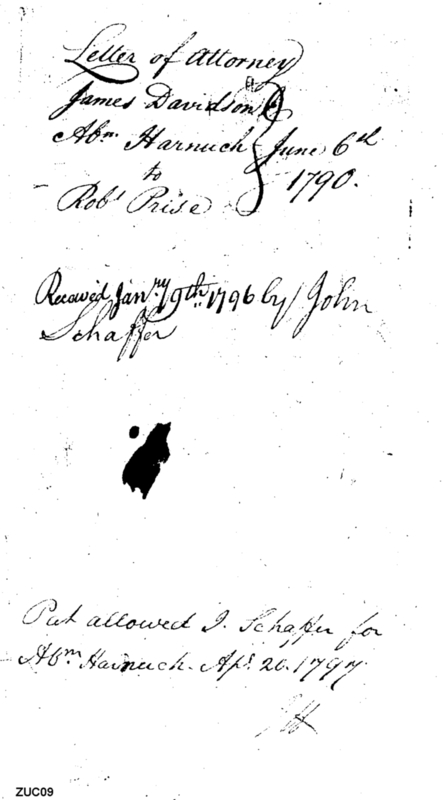 Letter of Attorney
James Davidson &
Abm Harnuch June 6th
to 1790.
Robt Prise
Received Janry 9th 1796 by John
Schaffer
Pat allowed J. Schaffer for
Abm Harnuch Apl 20. 1797
ZUC09